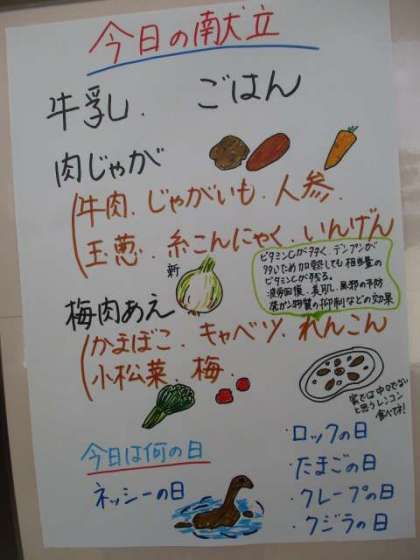 今日の献立
牛乳. ごはん
肉じゃが
牛肉. じゃがいも. 人参.
玉葱. 糸こんにゃく. いんげん
新
ビタミンCが多く、デンプンが
多いため加熱しても相当量の
ビタミンCが残る。
疲労回復・美肌・風邪の予防
発がん物質の抑制などの効果
梅肉あえ
かまぼこ. キャベツ. れんこん
小松菜. 梅.
家では中々でない
と思うレンコン
食べてネ!
今日は何の日
ネッシーの日
・ロックの日
・たまごの日
・クレープの日
・クジラの日